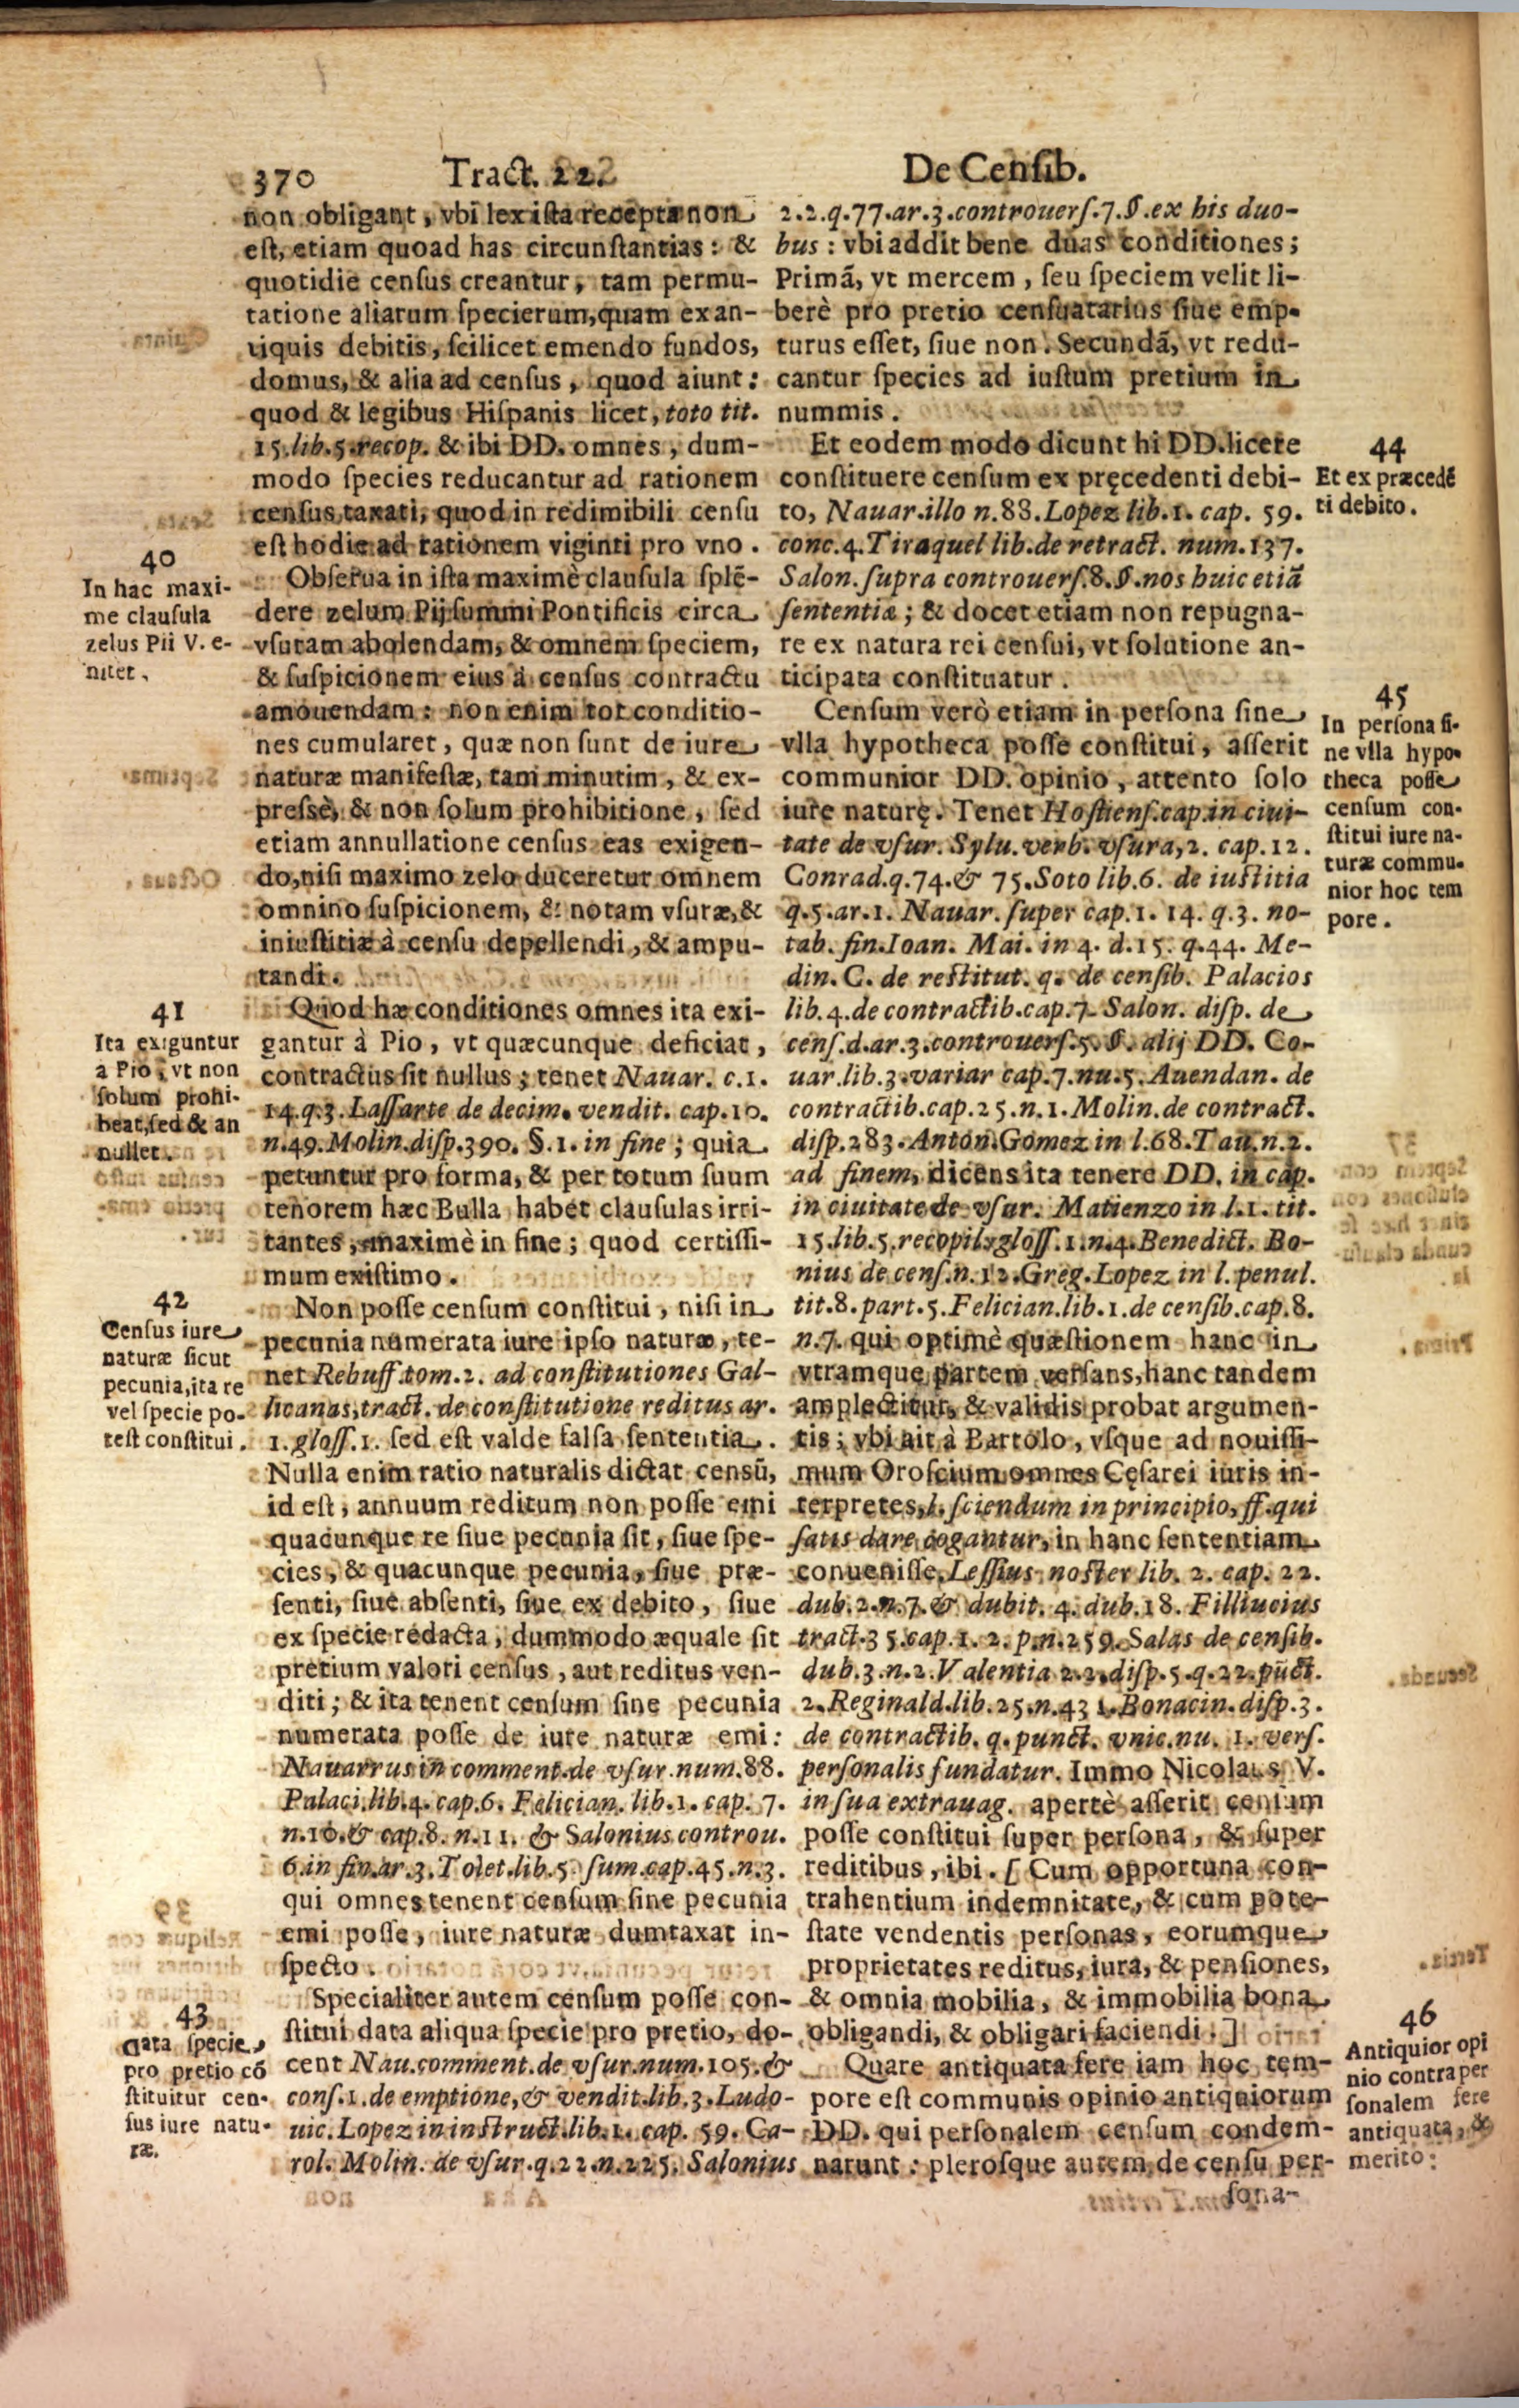 370 Tract. 22. De Censib.
non obligant, vbi lex ista recepta non
est, etiam quoad has circunstantias: &
quotidie census creantur, tam permu-
tatione aliarum specierum, quam ex an-
tiquis debitis, scilicet emendo fundos,
domus, & alia ad census, quod aiunt:
quod & legibus Hispanis licet, toto tit.
15. lib. 5. recop. & ibi DD. omnes, dum-
modo species reducantur ad rationem
census taxati, quod in redimibili censu
est hodie ad rationem viginti pro vno.
40
In hac maxi-
me clausula
zelus Pii V. e-
nitet.
Obserua in ista maximè clausula splē-
dere zelum Pij summi Pontificis circa
vsuram abolendam, & omnem speciem,
& suspicionem eius à census contractu
amouendam: non enim tot conditio-
nes cumularet, quæ non sunt de iure
naturæ manifestæ, tam minutim, & ex-
pressè, & non solum prohibitione, sed
etiam annullatione census eas exigen-
do, nisi maximo zelo duceretur omnem
omnino suspicionem, & notam vsuræ, &
iniustitiæ à censu depellendi, & ampu-
tandi.
41
Ita exiguntur
a Pio, vt non
solum prohi-
beat, sed & an
nullet.
Quod hæ conditiones omnes ita exi-
gantur à Pio, vt quæcunque deficiat,
contractus sit nullus; tenet Nauar. c. 1.
14. q. 3. Lassarte de decim. vendit. cap. 10.
n. 49. Molin. disp. 390. §. 1. in fine; quia
petuntur pro forma, & per totum suum
tenorem hæc Bulla habet clausulas irri-
tantes, maximè in fine; quod certissi-
mum existimo.
42
Census iure
naturæ sicut
pecunia, ita re
vel specie po-
test constitui.
Non posse censum constitui, nisi in
pecunia numerata iure ipso naturæ, te-
net Rebuff. tom. 2. ad constitutiones Gal-
licanas, tract. de constitutione reditus ar.
1. gloss. 1. sed est valde falsa sententia.
Nulla enim ratio naturalis dictat censū,
id est, annuum reditum non posse emi
quacunque re siue pecunia sit, siue spe-
cies, & quacunque pecunia, siue præ-
senti, siue absenti, siue ex debito, siue
ex specie redacta, dummodo æquale sit
pretium valori census, aut reditus ven-
diti; & ita tenent censum sine pecunia
numerata posse de iure naturæ emi:
Nauarrus in comment. de vsur. num. 88.
Palaci. lib. 4. cap. 6. Felician. lib. 1. cap. 7.
n. 10. & cap. 8. n. 11. & Salonius controu.
6. in fin. ar. 3. Tolet. lib. 5. sum. cap. 45. n. 3.
qui omnes tenent censum sine pecunia
emi posse, iure naturæ dumtaxat in-
specto.
43
Data specie
pro pretio cō
stituitur cen-
sus iure natu-
ræ.
Specialiter autem censum posse con-
stitui data aliqua specie pro pretio, do-
cent Nau. comment. de vsur. num. 105. &
cons. 1. de emptione, & vendit. lib. 3. Ludo-
uic. Lopez in instruct. lib. 1. cap. 59. Ca-
rol. Molin. de vsur. q. 22. n. 225. Salonius
2. 2. q. 77. ar. 3. controuers. 7. §. ex his duo-
bus: vbi addit bene duas conditiones;
Primā, vt mercem, seu speciem velit li-
berè pro pretio censuatarius siue emp-
turus esset, siue non. Secundā, vt redu-
cantur species ad iustum pretium in
nummis.
44
Et ex præcedē
ti debito.
Et eodem modo dicunt hi DD. licere
constituere censum ex pręcedenti debi-
to, Nauar. illo n. 88. Lopez lib. 1. cap. 59.
conc. 4. Tiraquel lib. de retract. num. 137.
Salon. supra controuers. 8. §. nos huic etiā
sententiæ; & docet etiam non repugna-
re ex natura rei censui, vt solutione an-
ticipata constituatur.
45
In persona si-
ne vlla hypo-
theca posse
censum con-
stitui iure na-
turæ commu-
nior hoc tem
pore.
Censum verò etiam in persona sine
vlla hypotheca posse constitui, asserit
communior DD. opinio, attento solo
iure naturę. Tenet Hostiens. cap. in ciui-
tate de vsur. Sylu. verb. vsura, 2. cap. 12.
Conrad. q. 74. & 75. Soto lib. 6. de iustitia
q. 5. ar. 1. Nauar. super cap. 1. 14. q. 3. no-
tab. fin. Ioan. Mai. in 4. d. 15. q. 44. Me-
din. C. de restitut. q. de censib. Palacios
lib. 4. de contractib. cap. 7. Salon. disp. de
cens. d. ar. 3. controuers. 5. §. alij DD. Co-
uar. lib. 3. variar cap. 7. nu. 5. Auendan. de
contractib. cap. 25. n. 1. Molin. de contract.
disp. 283. Anton. Gomez in l. 68. Tau. n. 2.
ad finem, dicens ita tenere DD. in cap.
in ciuitate de vsur. Matienzo in l. 1. tit.
15. lib. 5. recopil. gloss. 1. n. 4. Benedict. Bo-
nius de cens. n. 12. Greg. Lopez in l. penul.
tit. 8. part. 5. Felician. lib. 1. de censib. cap. 8.
n. 7. qui optimè quæstionem hanc in
vtramque partem versans, hanc tandem
amplectitur, & validis probat argumen-
tis; vbi ait à Bartolo, vsque ad nouissi-
mum Oroscium omnes Cęsarei iuris in-
terpretes, l. sciendum in principio, ff. qui
satis dare cogantur, in hanc sententiam
conuenisse, Lessius noster lib. 2. cap. 22.
dub. 2. n. 7. & dubit. 4. dub. 18. Filliucius
tract. 35. cap. 1. 2. p. n. 259. Salas de censib.
dub. 3. n. 2. Valentia 2. 2. disp. 5. q. 22. pūct.
2. Reginald. lib. 25. n. 431. Bonacin. disp. 3.
de contractib. q. punct. vnic. nu. 1. vers.
personalis fundatur. Immo Nicolaus V.
in sua extrauag. apertè asserit censum
posse constitui super persona, & super
reditibus, ibi. [ Cum opportuna con-
trahentium indemnitate, & cum pote-
state vendentis personas, eorumque
proprietates reditus, iura, & pensiones,
& omnia mobilia, & immobilia bona
obligandi, & obligari faciendi. ]
46
Antiquior opi
nio contra per
sonalem fere
antiquata, &
merito:
Quare antiquata fere iam hoc tem-
pore est communis opinio antiquiorum
DD. qui personalem censum condem-
narunt: plerosque autem de censu per-
sona-